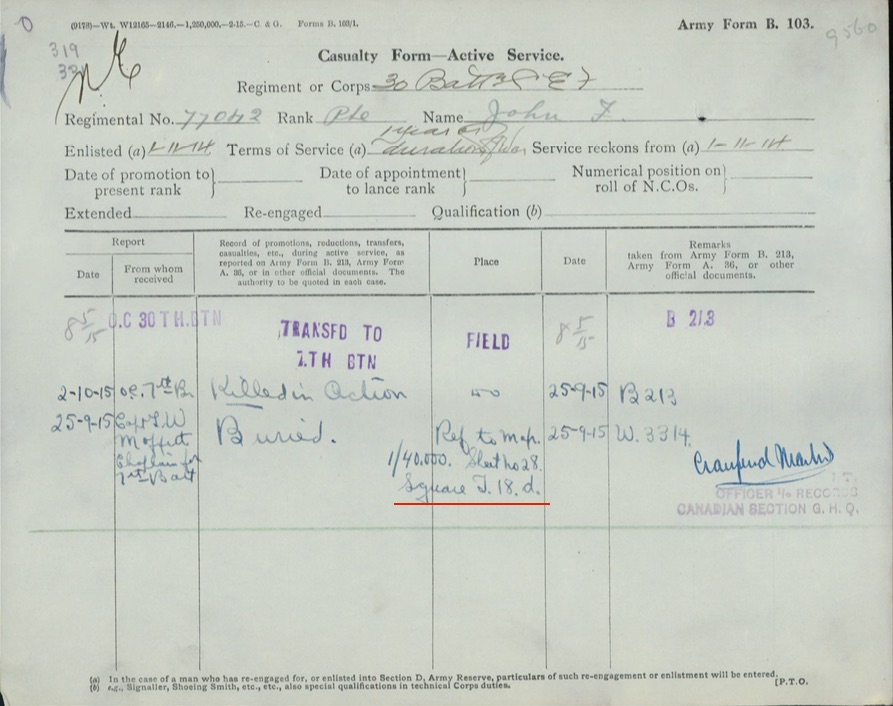 (9178)—Wt. W12165—2146.—1,250,000.—2-15.—C. & O. Forms B. 103/1.
Army Form B. 103.
9560
319
Casualty Form—Active Service.
Regiment or Corps 30 Battn C E F
Regimental No. 77042 Rank Pte Name John F.
1 year or
Enlisted (a) 1-11-14 Terms of Service (a) duration of War Service reckons from (a) 1-11-14
Date of promotion to present rank } Date of appointment to lance rank } Numerical position on roll of N.C.Os. }
Extended Re-engaged Qualification (b)
Report
Date
From whom received
Record of promotions, reductions, transfers, casualties, etc., during active service, as reported on Army Form B. 213, Army Form A. 36, or in other official documents. The authority to be quoted in each case.
Place
Date
Remarks
taken from Army Form B. 213, Army Form A. 36, or other official documents.
8 5/15 O.C 30TH.BTN TRANSFD TO 7.TH BTN FIELD 8 5/15 B 213
2-10-15 OC. 7th Bn Killed in Action do 25-9-15 B213
25-9-15 Capt Buried. Ref. to Map. 25-9-15 W. 3314.
Moffit 1/40.000. Sheet No 28.
Chaplain for Square T. 18. d.
7th Batt
OFFICER i/c RECORDS
CANADIAN SECTION G. H. Q.
(a) In the case of a man who has re-engaged for, or enlisted into Section D, Army Reserve, particulars of such re-engagement or enlistment will be entered.
(b) e.g., Signaller, Shoeing Smith, etc., etc., also special qualifications in technical Corps duties.
[P.T.O.